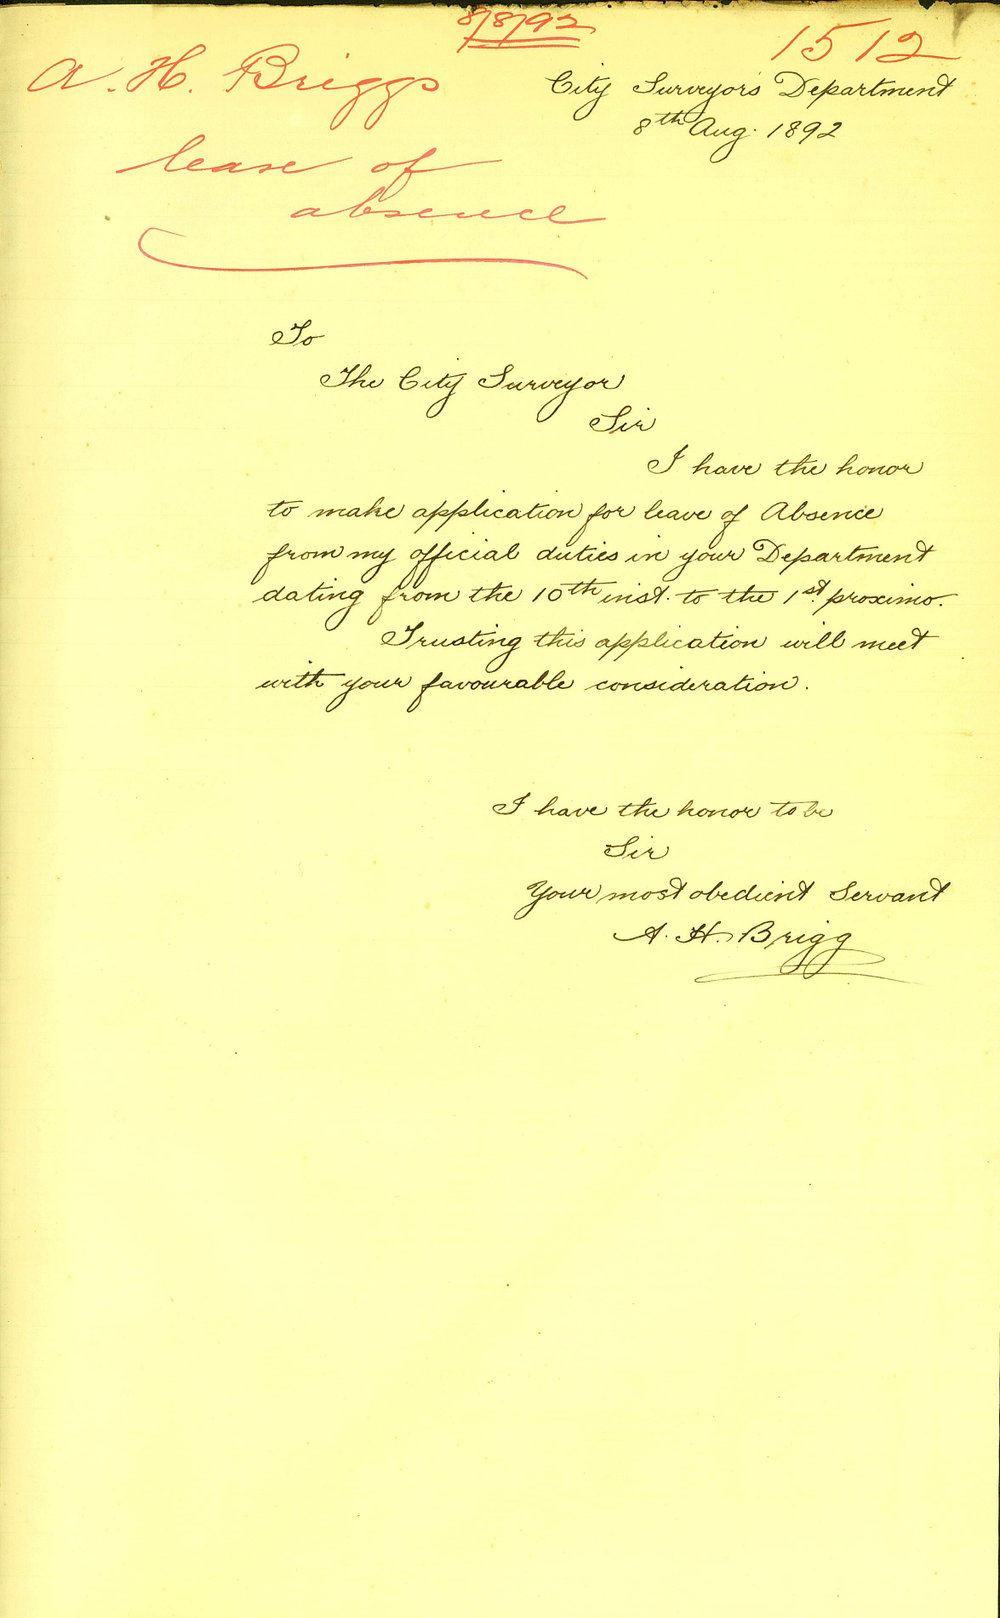 8/8/92
1512
A. H. Briggs
City Surveyor's Department
8th Aug. 1892
leave of
absence
To
The City Surveyor
Sir
I have the honor
to make application for leave of Absence
from my official duties in your Department
dating from the 10th inst. to the 1st. proximo.
Trusting this application will meet
with your favourable consideration.
I have the honor to be
Sir
Your most obedient Servant
A. H. Brigg